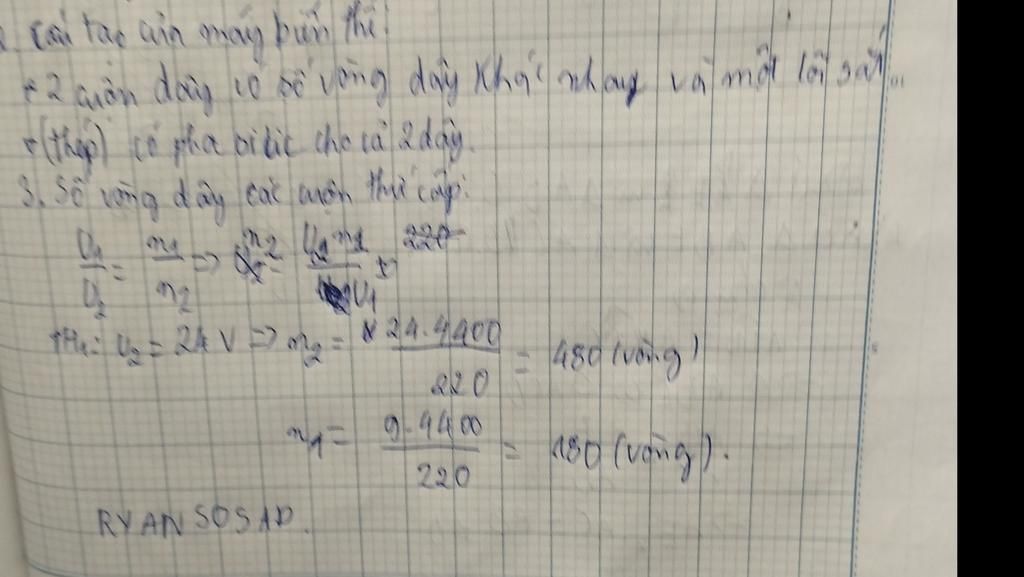 2. Cấu tạo của máy biến thế:
+ 2 cuộn dây có số vòng dây khác nhau và một lõi sắt
+ (thép) có pha silic cho cả 2 dây.
3. Số vòng dây các cuộn thứ cấp:
U1/U2 = n1/n2 => n2 = U2.n1/U1 220
TH1: U2 = 24 V => n2 = 24.4400/220 = 480 (vòng)
n1 = 9.4400/220 = 180 (vòng).
RYAN SOSAD.